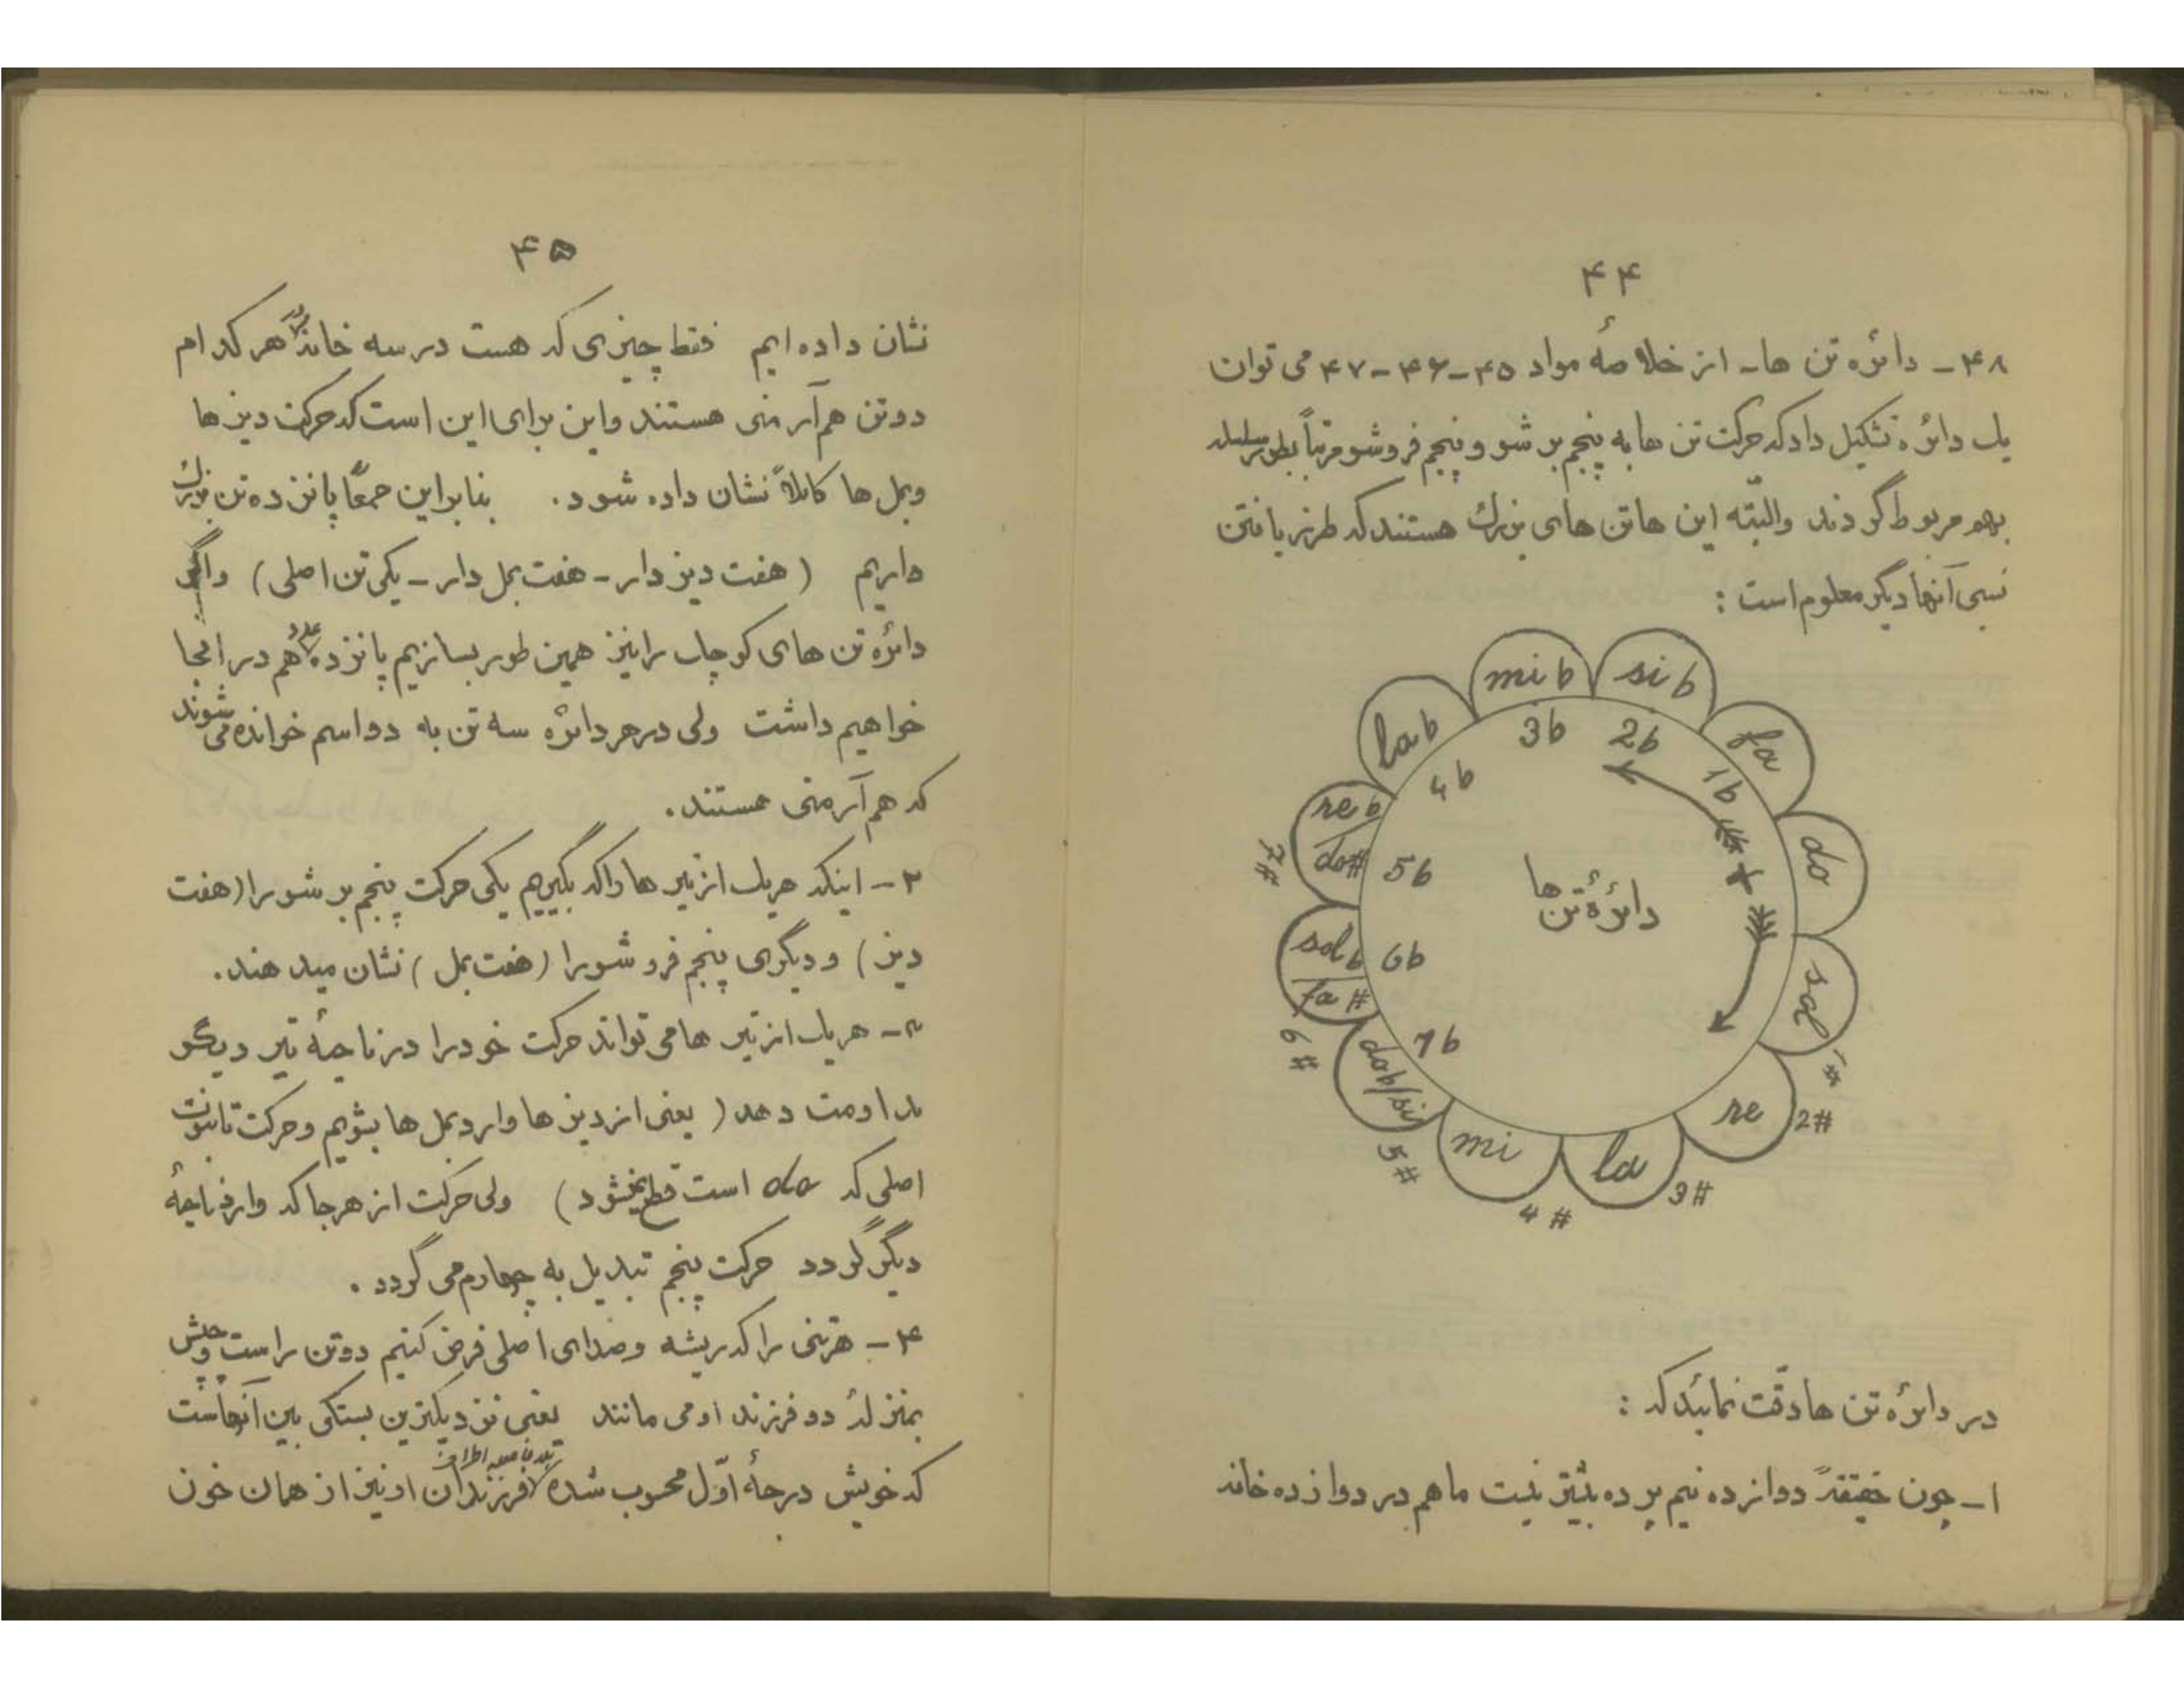 ۴۴
۴۸ - دائره تن ها - از خلاصهٔ مواد ۴۵-۴۶-۴۷ می توان
یک دائره تشکیل داد که حرکت تن ها به پنجم بر شو و پنجم فروشو مرتباً بطور سلسله
بهم مربوط گردند والبّته این هاتن های بزرگ هستند که طرز یافتن
نسبی آنها دیگر معلوم است :
mi b
si b
la b
fa
3b
2b
4b
1b
re b
do#
7#
5b
do
دائرۀ تن ها
sol b
fa #
6#
6b
sol
1#
7b
dob/si
5#
mi
4#
la
3#
re
2#
در دائره تن ها دقّت نمائید که :
۱ - چون حقیقةً دوازده نیم پرده بیشتر نیست ما هم در دوازده خانه
۴۵
نشان داده ایم فقط چیزی که هست در سه خانه هر کدام
دوتن هم آرمنی هستند واین برای این است که حرکت دیزها
وبمل ها کاملاً نشان داده شود . بنابراین جمعاً پانزده تن بزرگ
داریم ( هفت دیز دار - هفت بمل دار - یکی تن اصلی ) واگر
دائره تن های کوچک رانیز همین طور بسازیم پانزده عدد هم در اینجا
خواهیم داشت ولی درهر دائره سه تن به دو اسم خوانده می شوند
که هم آرمنی هستند .
۲ - اینکه هریک از تیر ها راکه بگیریم یکی حرکت پنجم بر شو را (هفت
دیز ) و دیگری پنجم فرو شورا (هفت بمل ) نشان میدهند .
۳ - هریک از تیر ها می تواند حرکت خود را در ناحیهٔ تیر دیگر
مداومت دهد ( یعنی از دیز ها وارد بمل ها بشویم و حرکت تا نوت
اصلی که do است قطع نمیشود ) ولی حرکت از هرجا که وارد ناحیهٔ
دیگر گردد حرکت پنجم تبدیل به چهارم می گردد .
۴ - هرتنی را که ریشه وصدای اصلی فرض کنیم دوتن راست وچپش
بمنزلهٔ دو فرزند او می مانند یعنی نزدیکترین بستگی بین آنهاست
که خویش درجهٔ اوّل محسوب شده فرزندان او نیز از همان خون